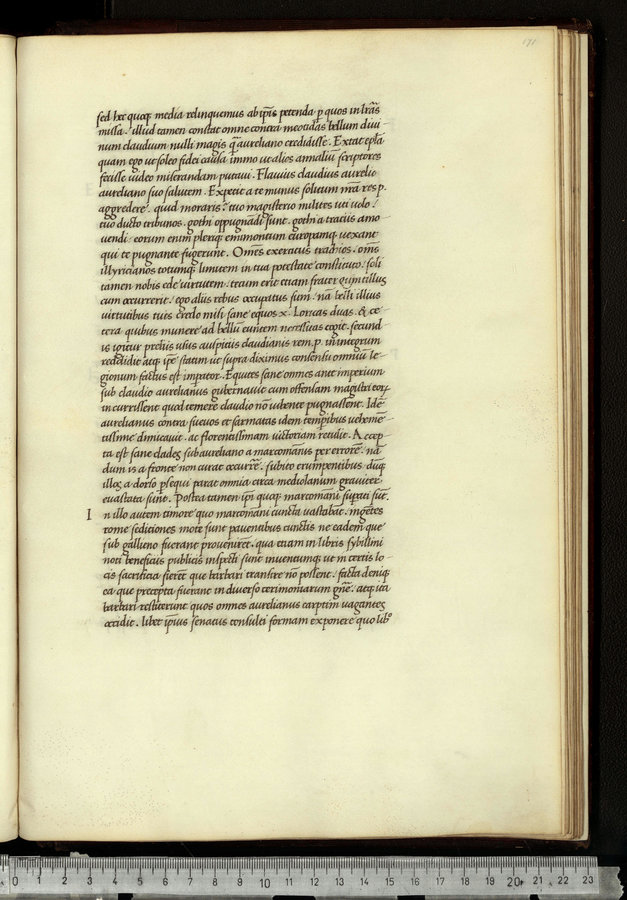 171
sed hec quoq; media relinquemus ab ip̄is petenda p quos in lrās
missa. illud tamen constat omne contra meotidas bellum diui
num claudium nulli magis q̄ aureliano credidisse. Extat ep̄la
quam ego ut soleo fidei causa immo ut alios annaliū scriptores
fecisse uideo inserandam putaui. Flauius claudius aurelio
aureliano suo salutem. Expetit a te munus solitum nr̄a res p.
aggredere. quid moraris? tuo magisterio milites uti uolo.
tuo ductu tribunos. gothi oppugnādi sunt. gothi a tracius amo
uendi. eorum enim pleriq; emimontum europamq; uexant
qui te pugnante fugerunt. Omēs exercitus tracios. omīs
illyricianos totumq; limitem in tua potestate constituto. soli
tamen nobis ede uirtutem. tecum erit etiam frater quintillus
cum occurrerit. ego aliis rebus occupatus sum. nā belli illius
uirtutibus tuis credo misi sane equos x. Loricas duas. & ce
tera quibus munere ad bellū euntem necessitas cogit. secund
is igitur preliis usus auspiciis claudianis rem. p. in integrum
reddidit atq; ip̄e statim ut supra diximus consensu omniū le
gionum factus est imp̄ator. Equites sane omnes ante imperium
sub claudio aurelianus gubernauit cum offensam magistri eor
incurrissent quod temere claudio nō iubente pugnassent. Idē
aurelianus contra sueuos et sarmatas idem temp̄ibus uehemē
tissime dimicauit. ac florentissimam uictoriam retulit. Accep
ta est sane clades sub aureliano a marcomānis per errorē. nā
dum is a fronte non curat occurrē. subito erumpentibus. dūq;
illos a dorso p̄sequi parat omnia circa mediolanum grauiter
euastata sunt. Postea tamen ip̄i quoq; marcomāni supati sūt.
In illo autem timore quo marcomāni cuncta uastabāt. ingētes
rome seditiones mote sunt pauentibus cunctis ne eadem que
sub gallieno fuerant prouenirēt. qua etiam in libris sybillini
noti beneficiis publicis inspecti sunt inuentumq; ut in certis lo
cis sacrificia fierēt que barbari transire nō possent. facta deniq;
ea que precepta fuerant in diuerso cerimoniarum gn̄e. atq; ita
barbari restiterunt quos omnes aurelianus carptim uagantes
occidit. libet ip̄ius senatus consulti formam exponere quo lib